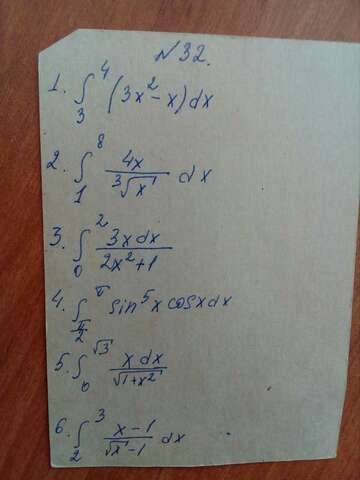 N32.
1. ∫₃⁴ (3x² - x) dx
2. ∫₁⁸ 4x/∛x dx
3. ∫₀² 3x dx/(2x² + 1)
4. ∫_{π/2}^{π} sin⁵x cosx dx
5. ∫₀^{√3} x dx/√(1 + x²)
6. ∫₂³ (x - 1)/(√x - 1) dx